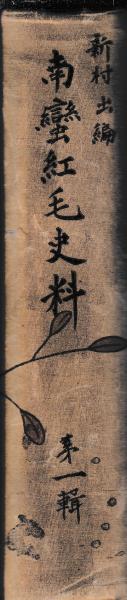 新村出編
南蠻紅毛史料
第一輯